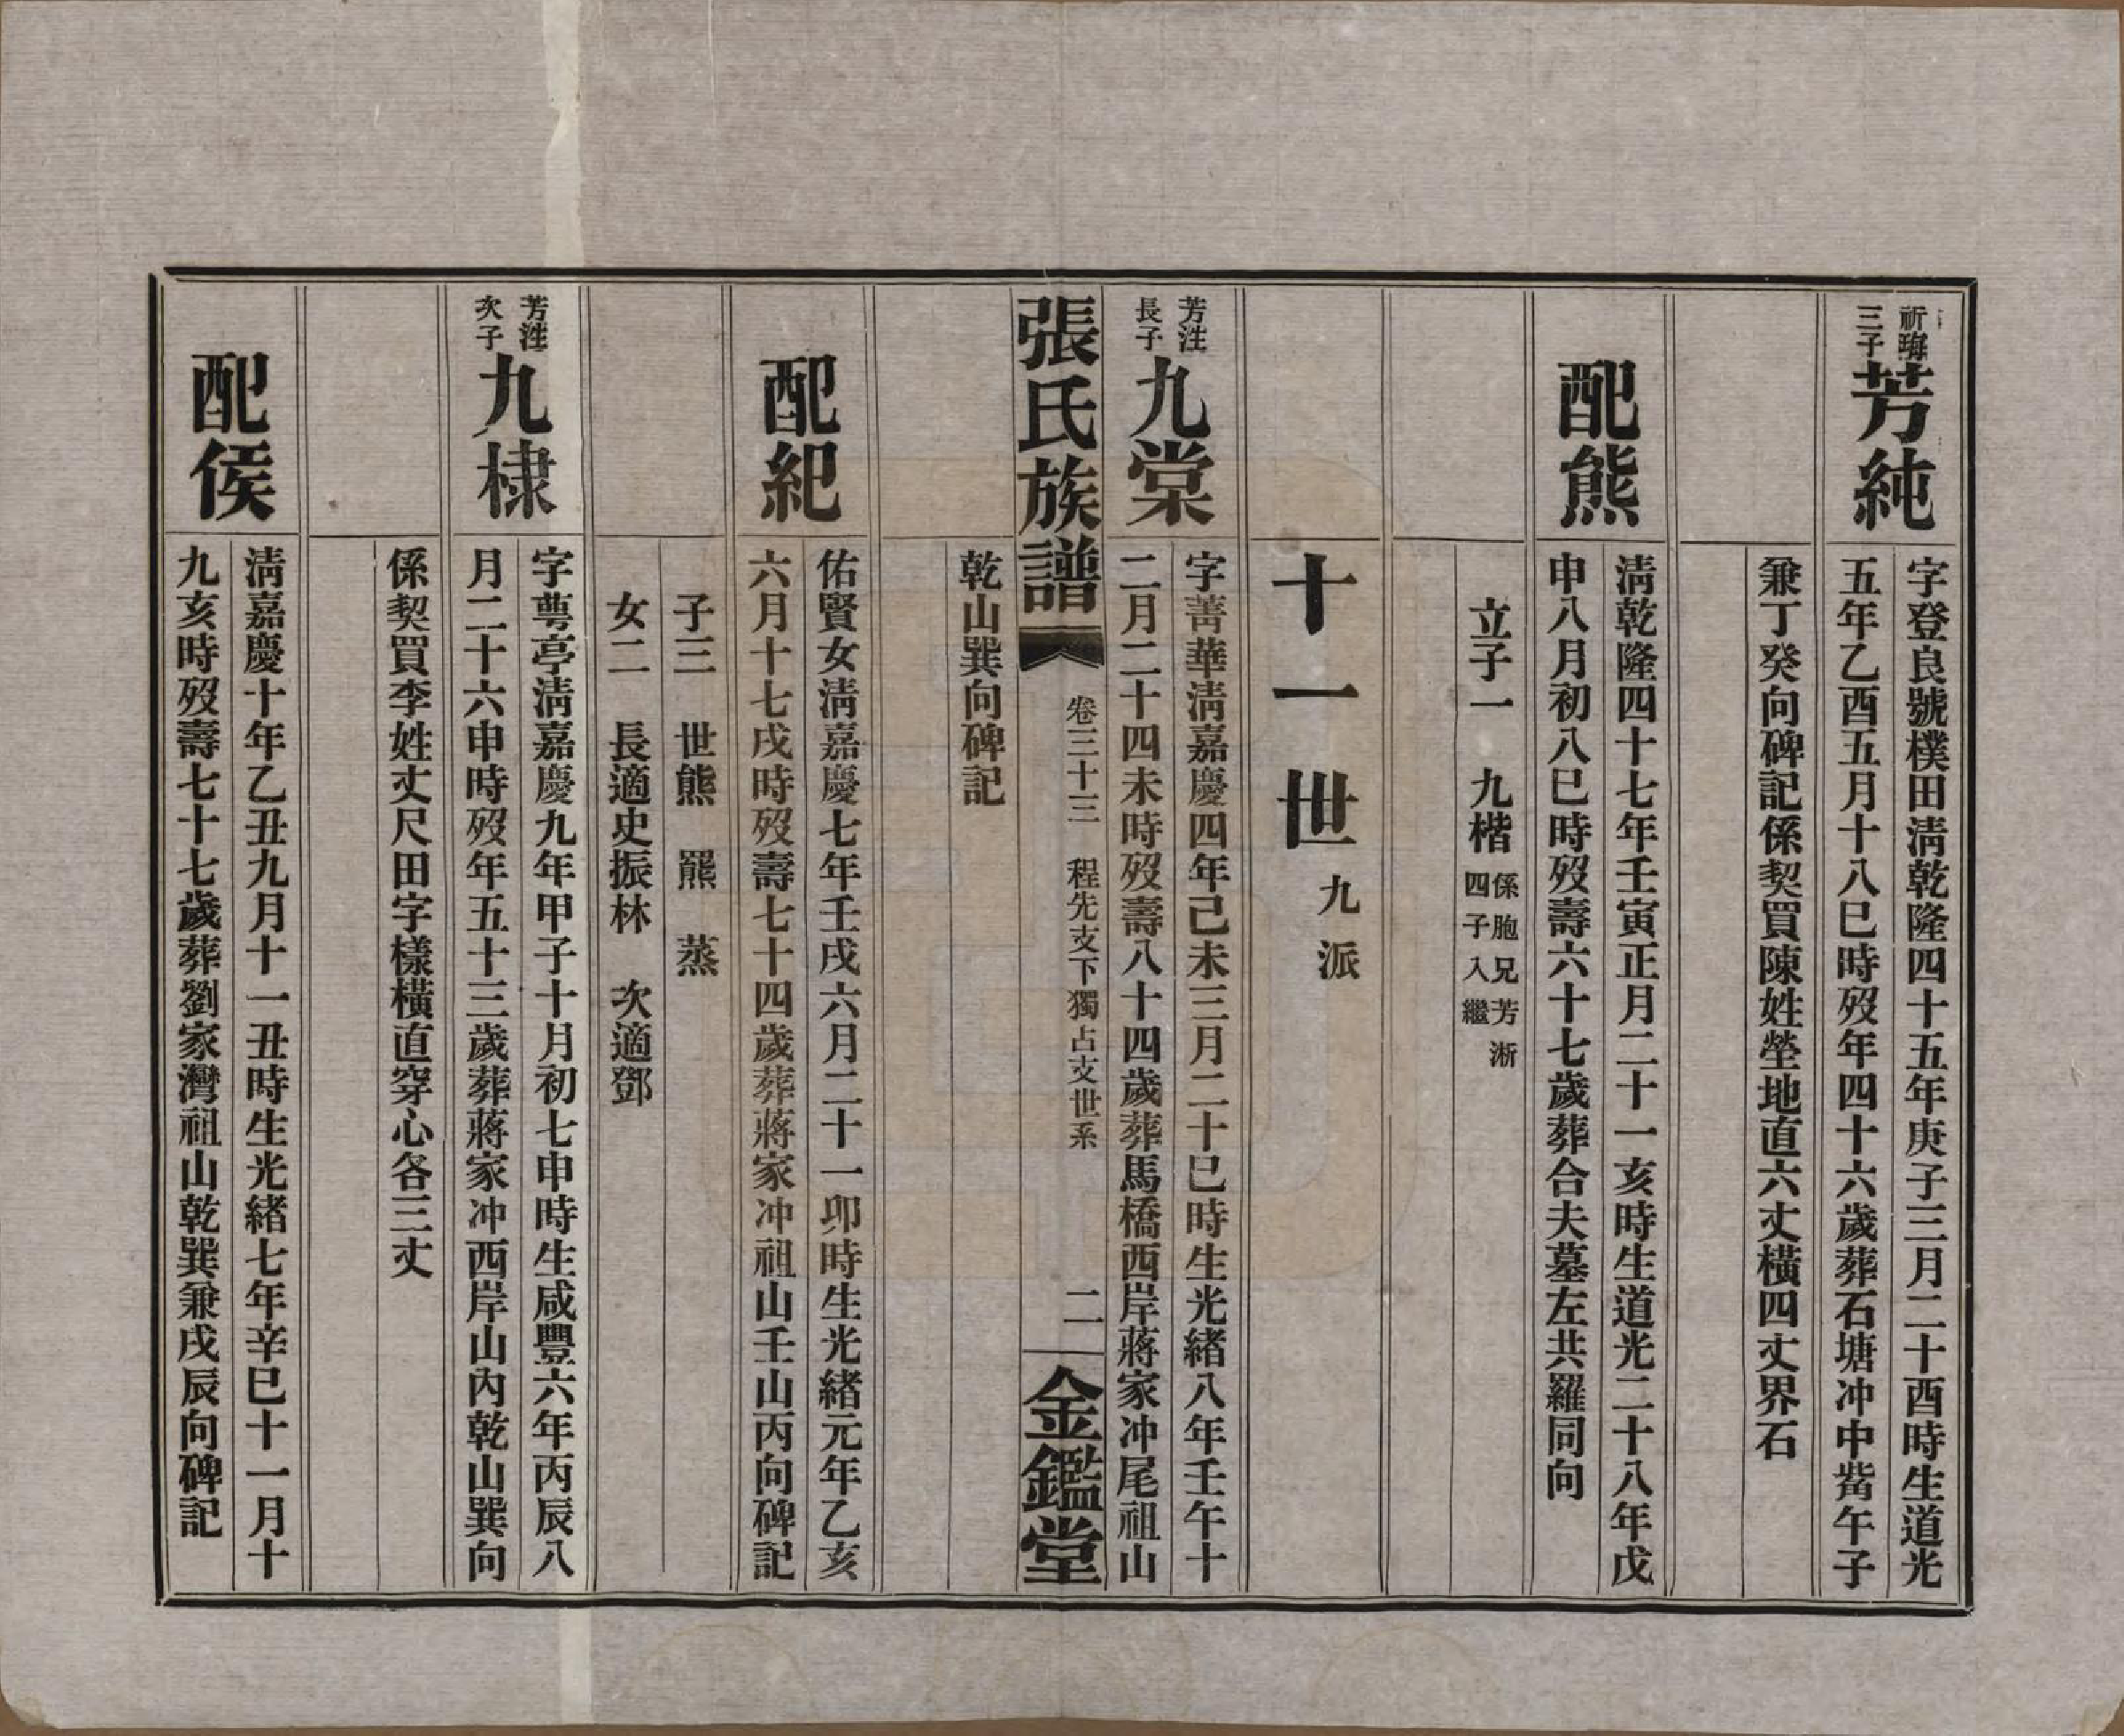 祈璈三子
芳純
字登良號樸田淸乾隆四十五年庚子三月二十酉時生道光
五年乙酉五月十八巳時歿年四十六歲葬石塘冲中嵴午子
兼丁癸向碑記係契買陳姓塋地直六丈橫四丈界石
配熊
淸乾隆四十七年壬寅正月二十一亥時生道光二十八年戊
申八月初八巳時歿壽六十七歲葬合夫墓左共羅同向
立子一　九楷
係胞兄芳淅
四子入繼
十一世 九派
芳泩
長子
九棠
字菁華淸嘉慶四年己未三月二十巳時生光緒八年壬午十
二月二十四未時歿壽八十四歲葬馬橋西岸蔣家冲尾祖山
張氏族譜
卷三十三　程先支下獨占支世系
二
金鑑堂
乾山巽向碑記
配紀
佑賢女淸嘉慶七年壬戌六月二十一卯時生光緒元年乙亥
六月十七戌時歿壽七十四歲葬蔣家冲祖山壬山丙向碑記
子三　世熊　羆　蒸
女二　長適史振林　次適鄧
芳泩
次子
九棣
字萼亭淸嘉慶九年甲子十月初七申時生咸豐六年丙辰八
月二十六申時歿年五十三歲葬蔣家冲西岸山內乾山巽向
係契買李姓丈尺田字樣橫直穿心各三丈
配侯
淸嘉慶十年乙丑九月十一丑時生光緒七年辛巳十一月十
九亥時歿壽七十七歲葬劉家灣祖山乾巽兼戌辰向碑記